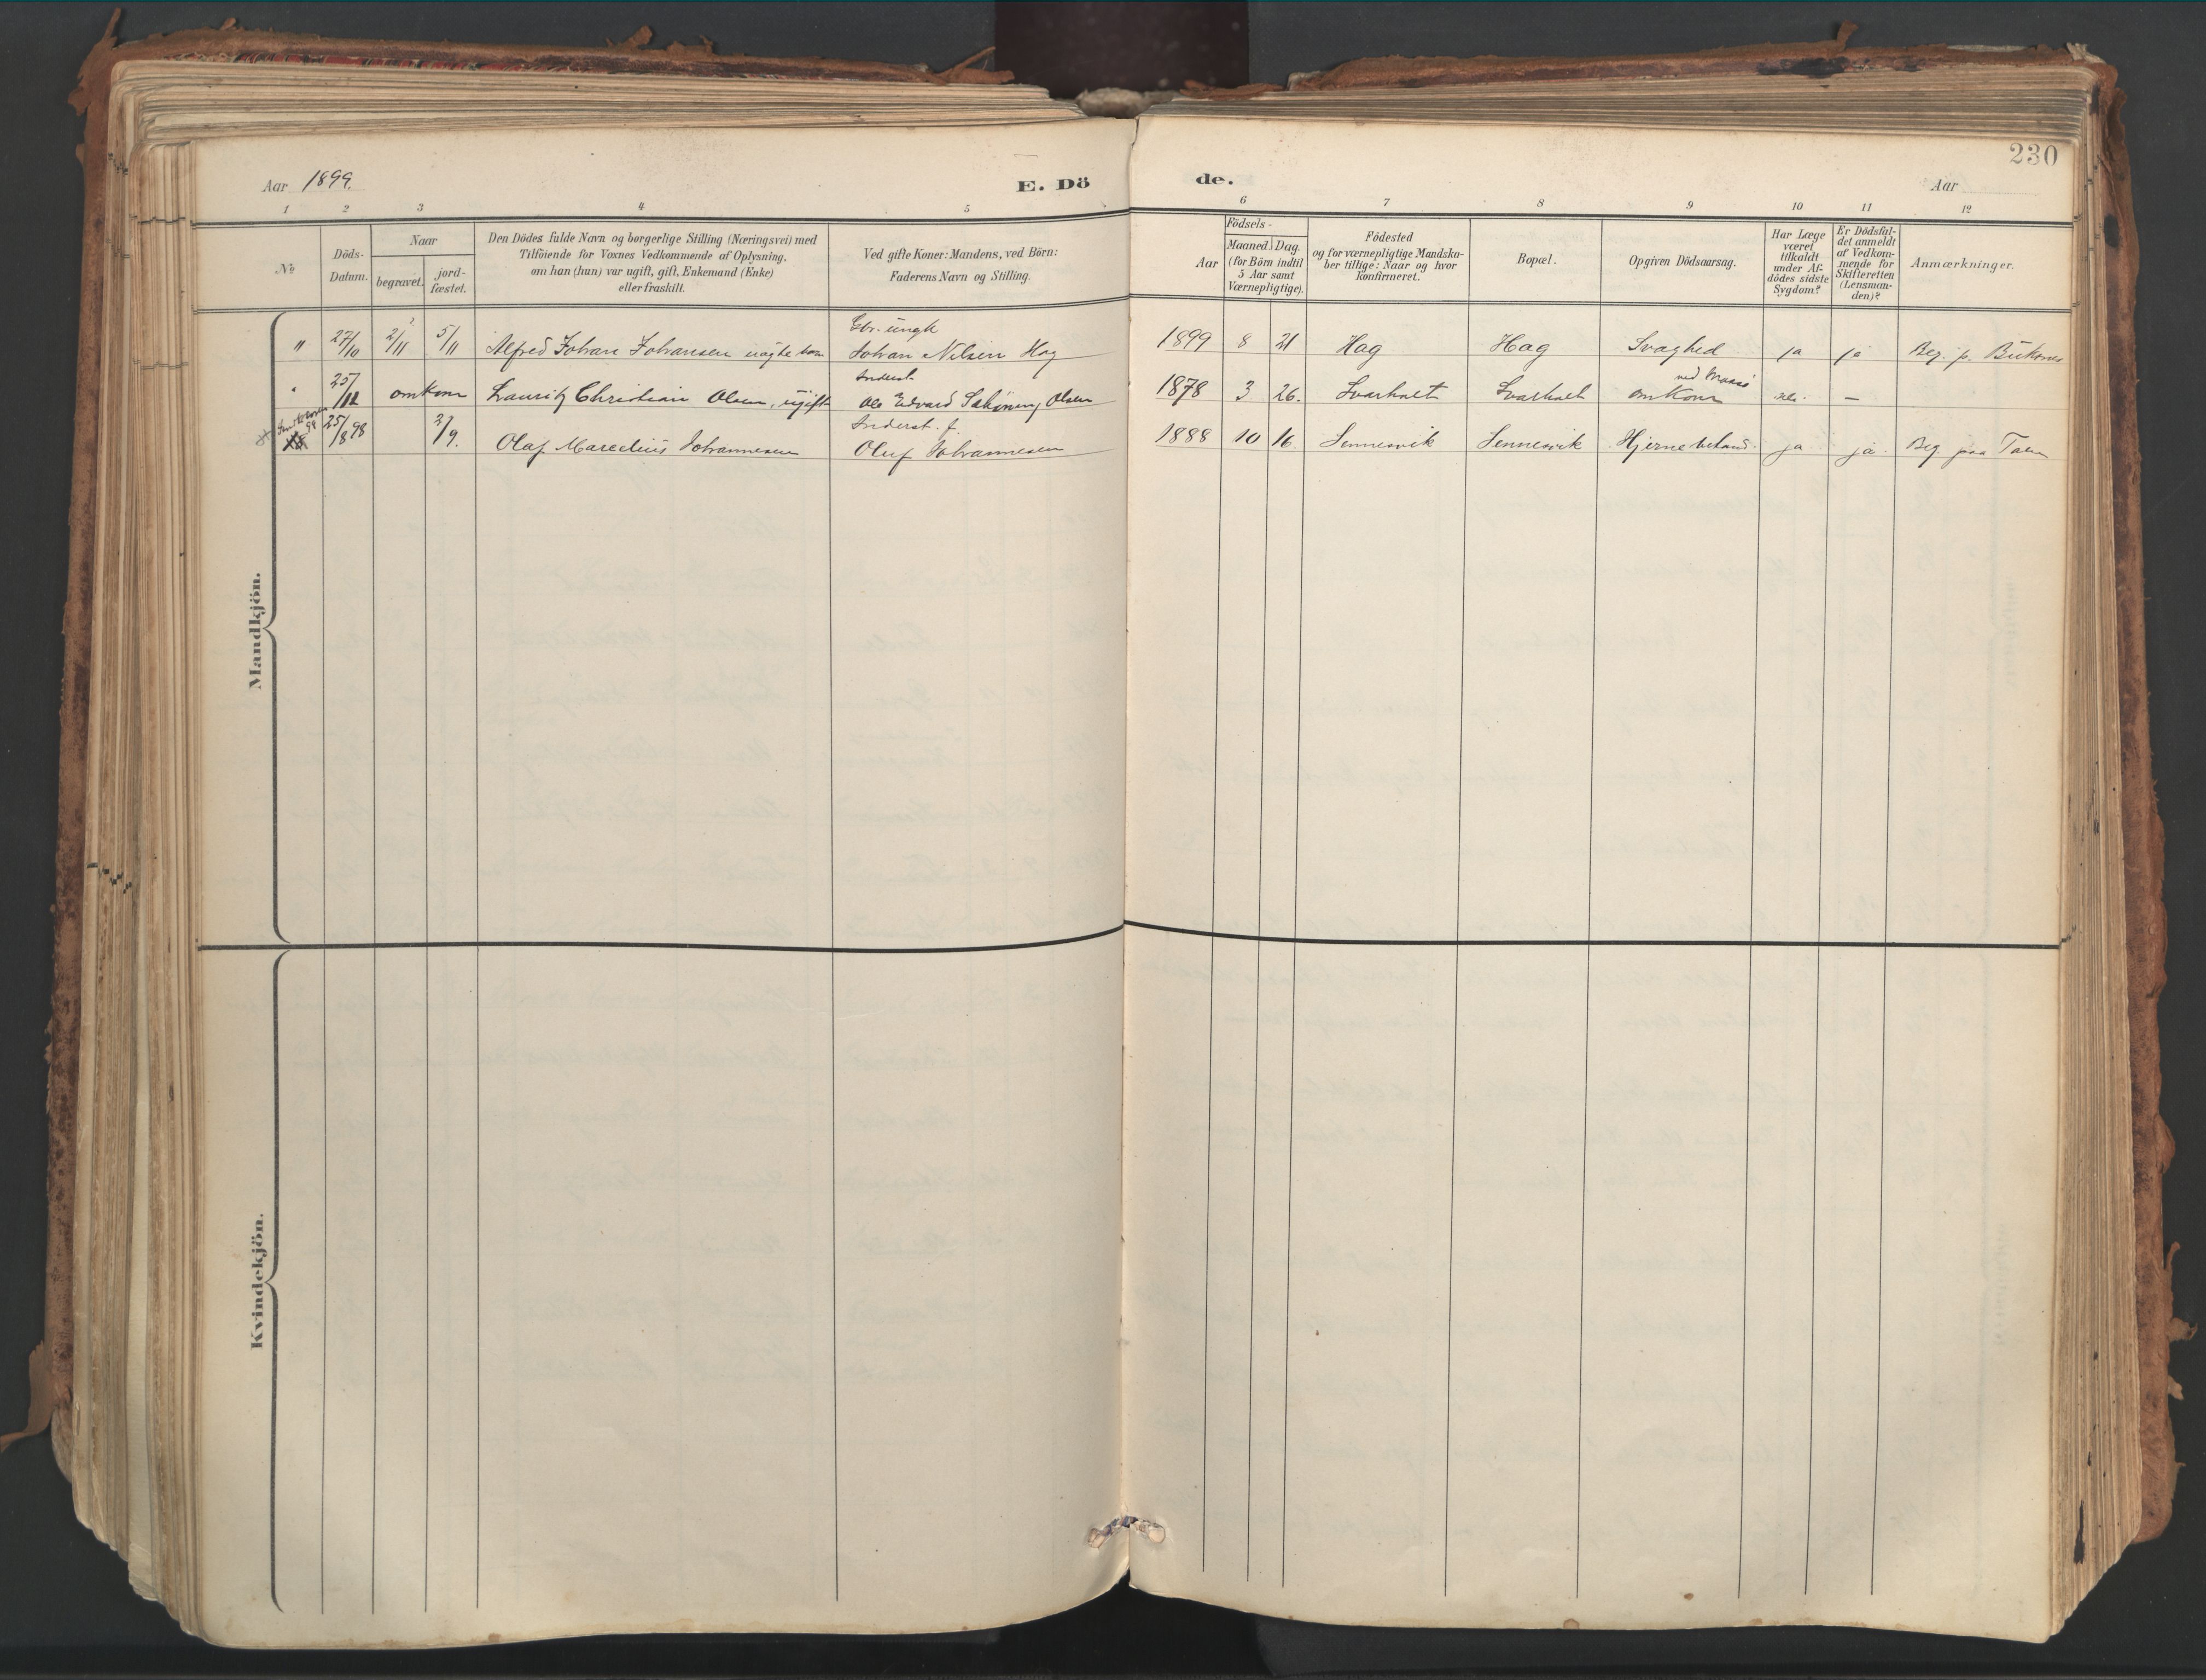 230
Aar 1899.
E. Dö
de.
Aar
1 2 3 4 5 6 7 8 9 10 11 12
№
Döds-
Datum.
Naar
begravet.
jord-
fæstet.
Den Dödes fulde Navn og borgerlige Stilling (Næringsvei) med
Tilföiende for Voxnes Vedkommende af Oplysning,
om han (hun) var ugift, gift, Enkemand (Enke)
eller fraskilt.
Ved gifte Koner: Mandens, ved Börn:
Faderens Navn og Stilling.
Födsels-
Aar
Maaned.
Dag.
(for Börn indtil
5 Aar samt
Værnepligtige).
Födested
og for værnepligtige Mandska-
ber tillige: Naar og hvor
konfirmeret.
Bopæl.
Opgiven Dödsaarsag.
Har Læge
været
tilkaldt
under Af-
dödes sidste
Sygdom?
Er Dödsfal-
det anmeldt
af Vedkom-
mende for
Skifteretten
(Lensman-
den)?
Anmærkninger.
Mandkjön.
Gbr. ungk
" 27/10 2/11 5/11 Alfred Johan Johansen uægte barn Johan Nilsen Hag 1899 8 21 Hag Hag Svaghed ja ja Beg. p. Buksnes
Inderst
ved
" 25/11 omkom Lauritz Christian Olsen, ugift Ole Edvard Schöning Olsen 1878 3 26. Svarholt Svarholt omkom nei. —
Inderst. f.
25/8 98 2/9. Olaf Marcelius Johannesen Oluf Johannesen 1888 10 16. Sennesvik Sennesvik Hjernebetænd. ja ja. Beg. paa
Kvindekjön.